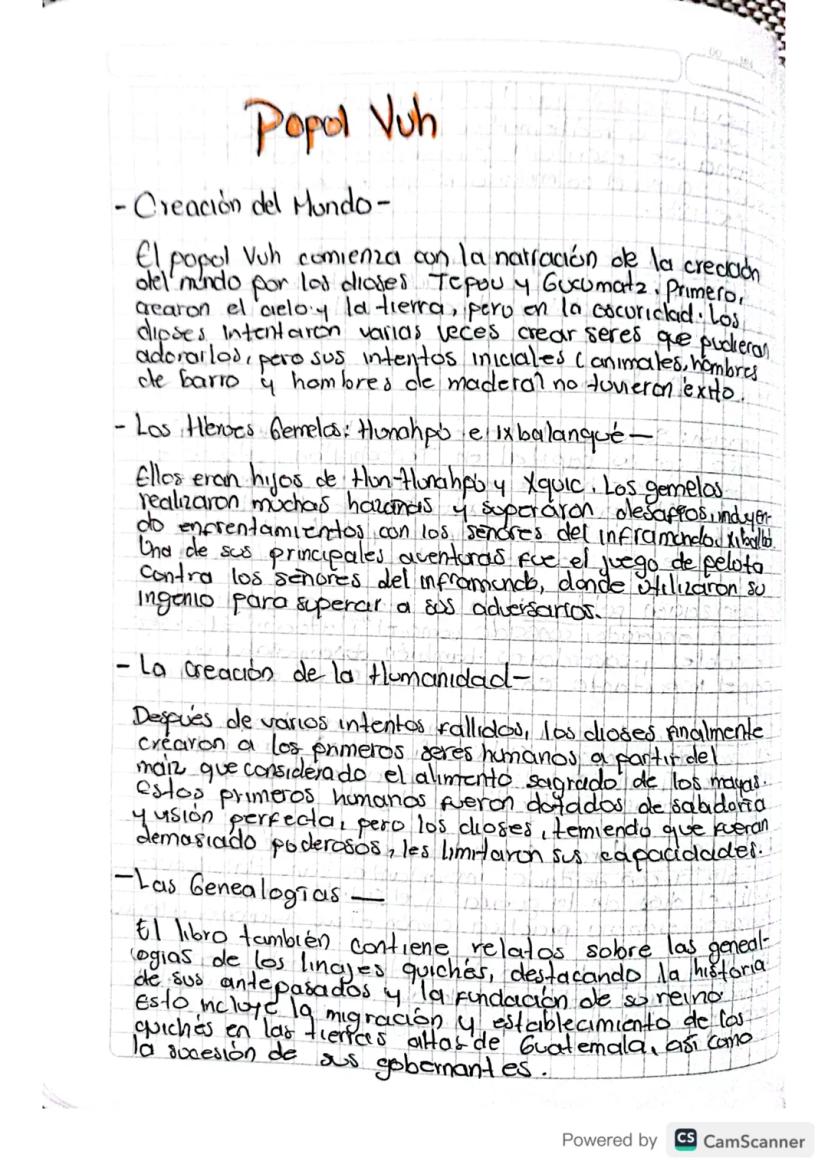 Popol Vuh
- Creación del Mundo -
El popol Vuh comienza con la narración de la creación
del mundo por los dioses Tepeu y Gucumatz. Primero,
crearon el cielo y la tierra, pero en la oscuridad. Los
dioses intentaron varias veces crear seres que pudieran
adorarlos, pero sus intentos iniciales (animales, hombres
de barro y hombres de madera) no tuvieron éxito.
- Los Héroes Gemelos: Hunahpú e Ixbalanqué -
Ellos eran hijos de Hun-Hunahpú y Xquic. Los gemelos
realizaron muchas hazañas y superaron desafíos, incluyen-
do enfrentamientos con los señores del inframundo, Xibalbá.
Una de sus principales aventuras fue el juego de pelota
contra los señores del inframundo, donde utilizaron su
ingenio para superar a sus adversarios.
- La Creación de la Humanidad -
Después de varios intentos fallidos, los dioses finalmente
crearon a los primeros seres humanos a partir del
maíz que considerado el alimento sagrado de los mayas.
Estos primeros humanos fueron dotados de sabiduría
y visión perfecta, pero los dioses, temiendo que fueran
demasiado poderosos, les limitaron sus capacidades.
- Las Genealogías -
El libro también contiene relatos sobre las geneal-
ogias de los linajes quichés, destacando la historia
de sus antepasados y la fundación de su reino
Esto incluye la migración y establecimiento de los
quichés en las tierras altas de Guatemala, así como
la sucesión de sus gobernantes.
Powered by CS CamScanner